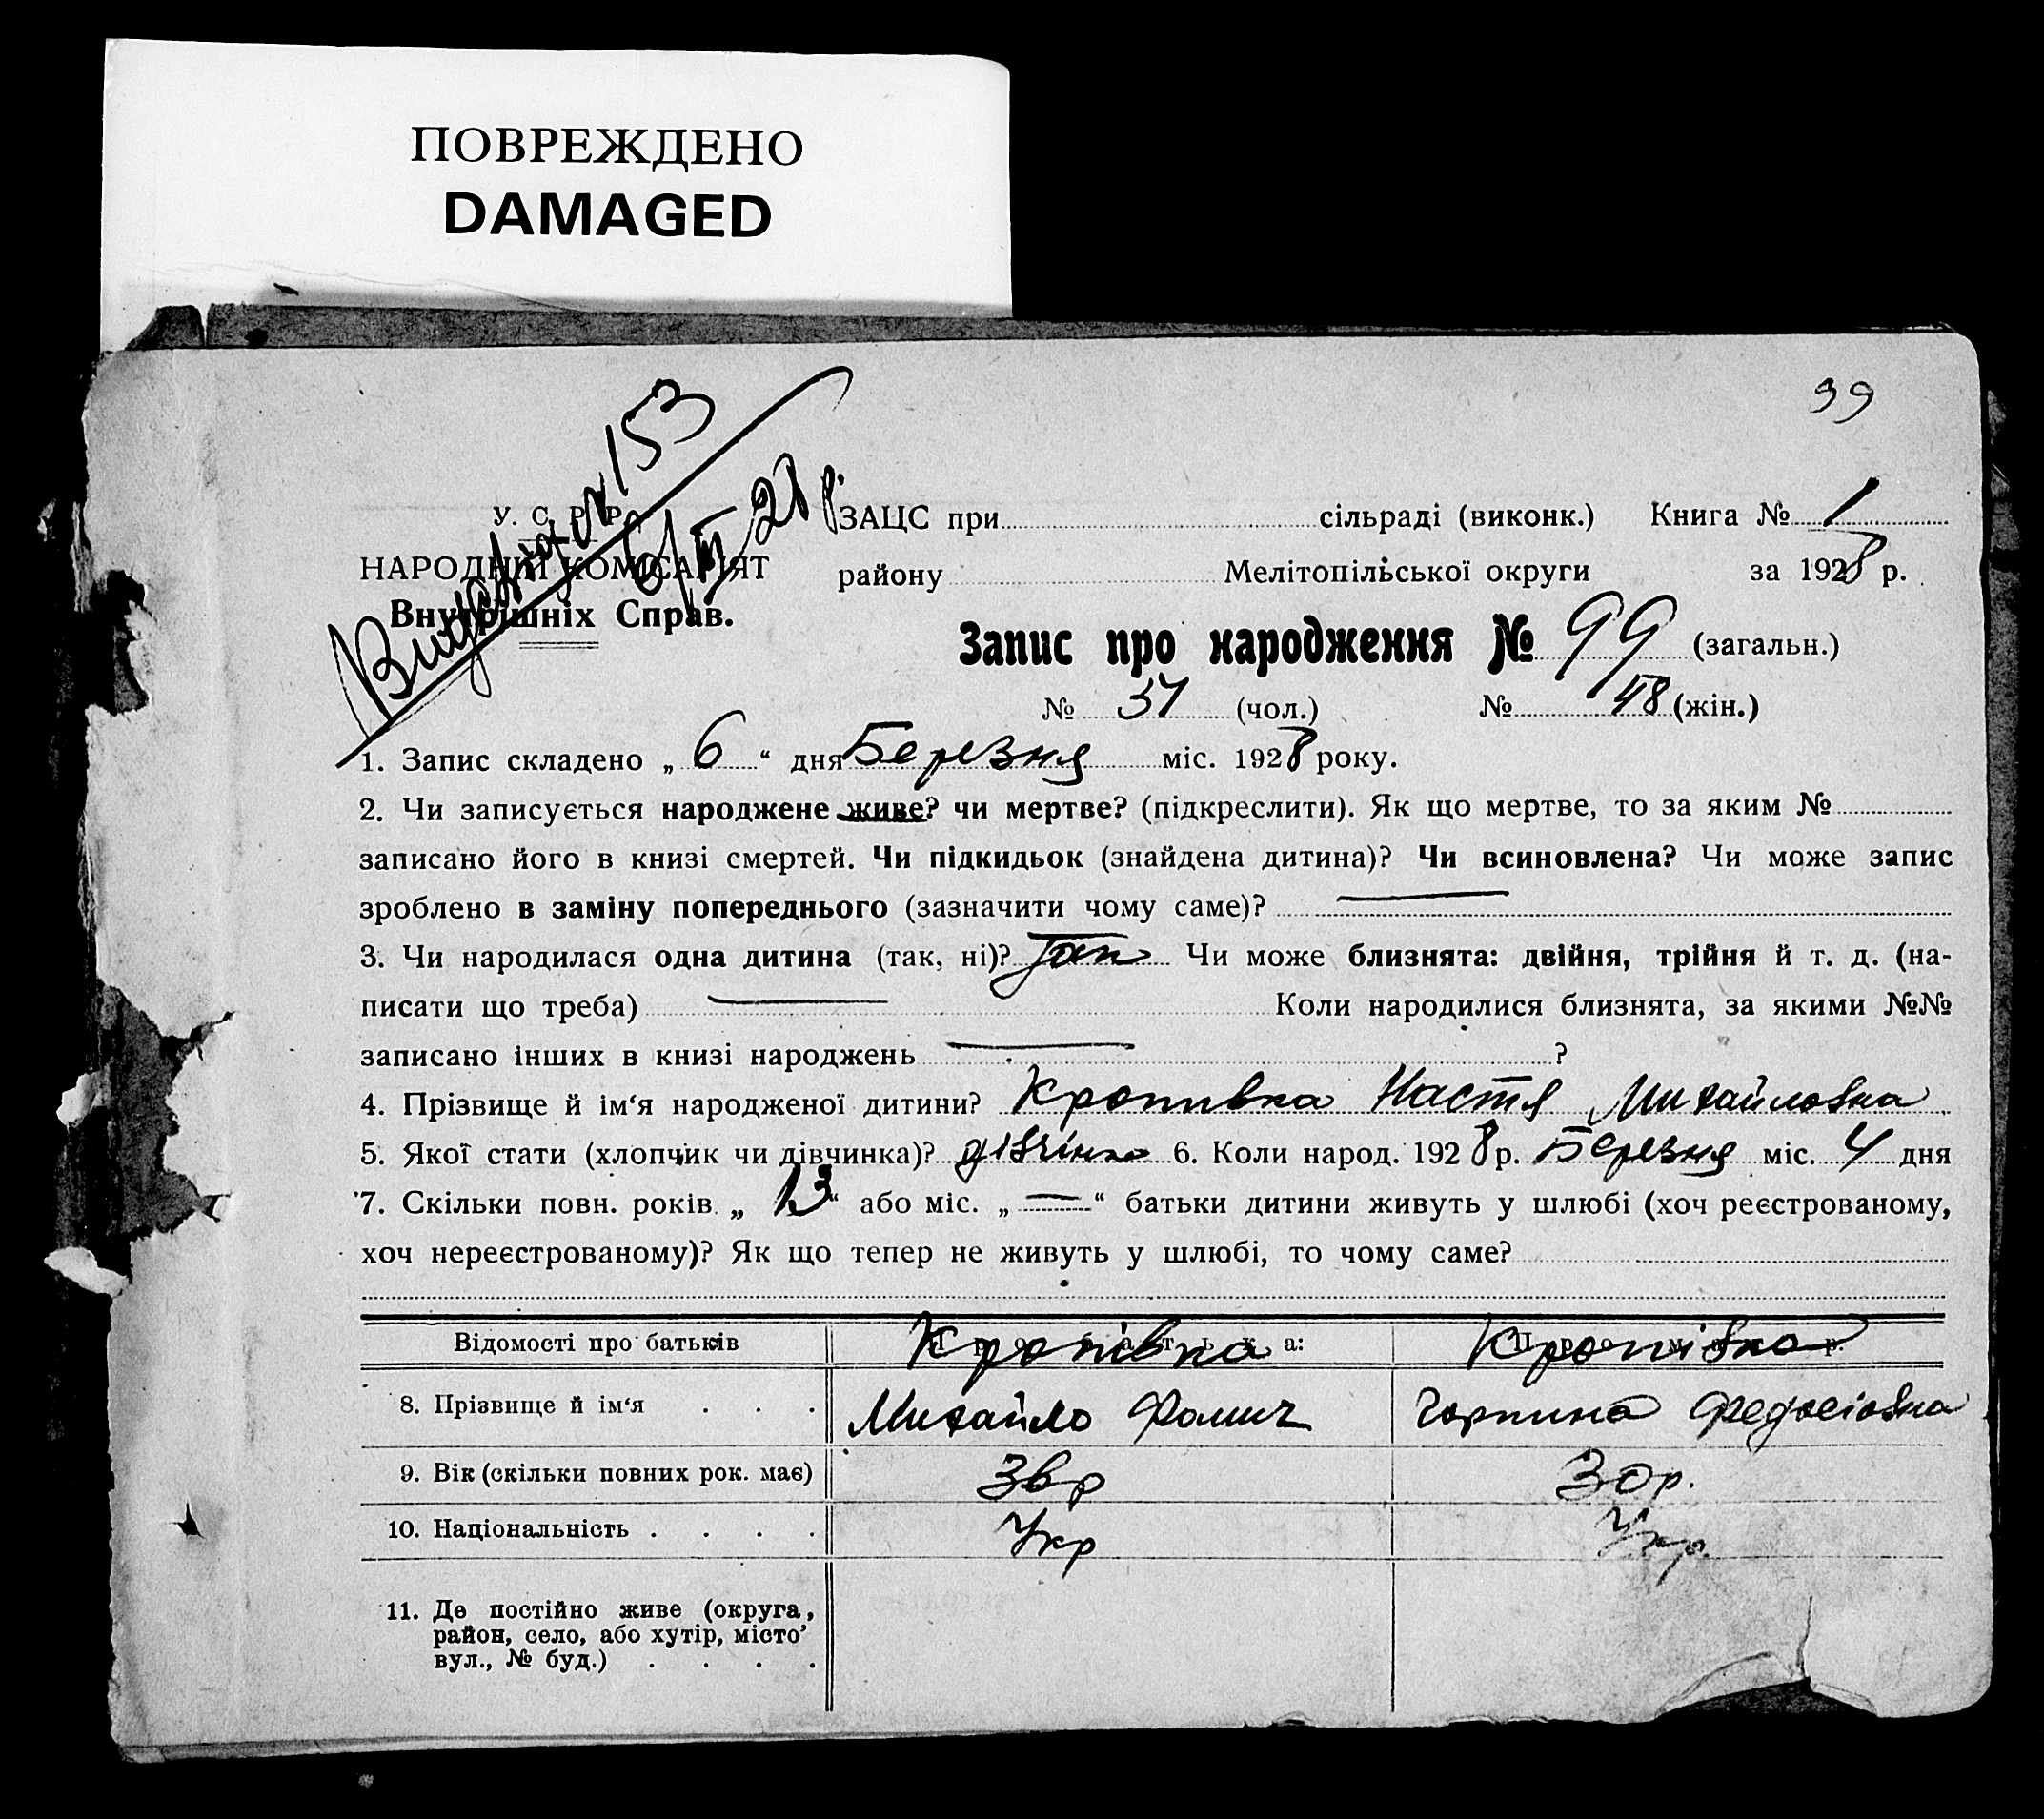 ПОВРЕЖДЕНО
DAMAGED
99
№ 153
6/III 28 р.
У. С. Р. Р.
НАРОДНІЙ КОМІСАРІЯТ
Внутрішніх Справ.
ЗАЦС при сільраді (виконк.) Книга № 1
району Мелітопільської округи за 1928 р.
Запис про народження № 99 (загальн.)
№ 51 (чол.) № 48 (жін.)
1. Запис складено „ 6 “ дня Березня міс. 1928 року.
2. Чи записується народжене живе? чи мертве? (підкреслити). Як що мертве, то за яким №
записано його в книзі смертей. Чи підкидьок (знайдена дитина)? Чи всиновлена? Чи може запис
зроблено в заміну попереднього (зазначити чому саме)? —
3. Чи народилася одна дитина (так, ні)? так Чи може близнята: двійня, трійня й т. д. (на-
писати що треба) — Коли народилися близнята, за якими №№
записано інших в книзі народжень — ?
4. Прізвище й ім‘я народженої дитини? Кропивка Настя Михайловна
5. Якої стати (хлопчик чи дівчинка)? дівчінка 6. Коли народ. 1928 р. Березня міс. 4 дня
7. Скільки повн. років „ 13 “ або міс. „ — “ батьки дитини живуть у шлюбі (хоч реєстрованому,
хоч нереєстрованому)? Як що тепер не живуть у шлюбі, то чому саме?
Відомості про батьків Кропівка Кропівка
8. Прізвище й ім‘я . . . Михайло Фомич Горпина Федосіовна
9. Вік (скільки повних рок. має) 36р 30р.
10. Національність . . . . Укр Укр.
11. Де постійно живе (округа,
район, село, або хутір, місто’
вул., № буд.) . . . .